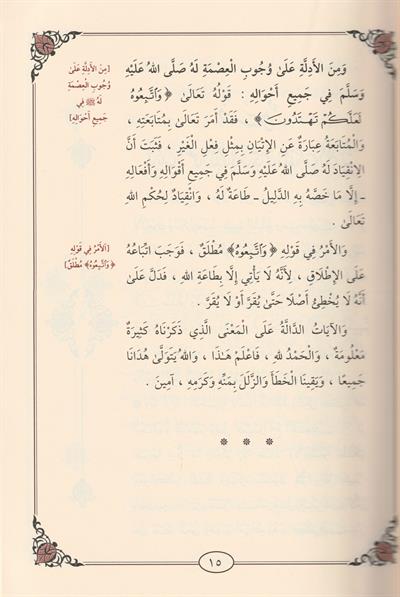 وَمِنَ الأَدِلَّةِ عَلَىٰ وُجُوبِ العِصْمَةِ لَهُ صَلَّى اللهُ عَلَيْهِ
وَسَلَّمَ فِي جَمِيعِ أَحْوَالِهِ : قَوْلُهُ تَعَالَىٰ ﴿وَٱتَّبِعُوهُ
لَعَلَّكُمْ تَهْتَدُونَ﴾ ، فَقَدْ أَمَرَ تَعَالَىٰ بِمُتَابَعَتِهِ ،
وَالْمُتَابَعَةُ عِبَارَةٌ عَنِ الإِتْيَانِ بِمِثْلِ فِعْلِ الغَيْرِ ، فَثَبَتَ أَنَّ
الِانْقِيَادَ لَهُ صَلَّى اللهُ عَلَيْهِ وَسَلَّمَ فِي جَمِيعِ أَقْوَالِهِ وَأَفْعَالِهِ
ـ إِلَّا مَا خَصَّهُ بِهِ الدَّلِيلُ ـ طَاعَةٌ لَهُ ، وَانْقِيَادٌ لِحُكْمِ اللهِ
تَعَالَىٰ .
[مِنَ الأَدِلَّةِ عَلَىٰ
وُجُوبِ العِصْمَةِ
لَهُ ﷺ فِي
جَمِيعِ أَحْوَالِهِ]
وَالأَمْرُ فِي قَوْلِهِ ﴿وَٱتَّبِعُوهُ﴾ مُطْلَقٌ ، فَوَجَبَ اتِّبَاعُهُ
عَلَى الإِطْلَاقِ ، لِأَنَّهُ لَا يَأْتِي إِلَّا بِطَاعَةِ اللهِ ، فَدَلَّ عَلَىٰ
أَنَّهُ لَا يُخْطِئُ أَصْلًا حَتَّىٰ يُقَرَّ أَوْ لَا يُقَرَّ .
[الأَمْرُ فِي قَوْلِهِ
﴿وَٱتَّبِعُوهُ﴾ مُطْلَقٌ]
وَالآيَاتُ الدَّالَّةُ عَلَى الْمَعْنَى الَّذِي ذَكَرْنَاهُ كَثِيرَةٌ
مَعْلُومَةٌ ، وَالْحَمْدُ لِلهِ ، فَاعْلَمْ هَٰذَا ، وَاللهُ يَتَوَلَّىٰ هُدَانَا
جَمِيعًا ، وَيَقِينَا الْخَطَأَ وَالزَّلَلَ بِمَنِّهِ وَكَرَمِهِ ، آمِينَ .
* * *
١٥